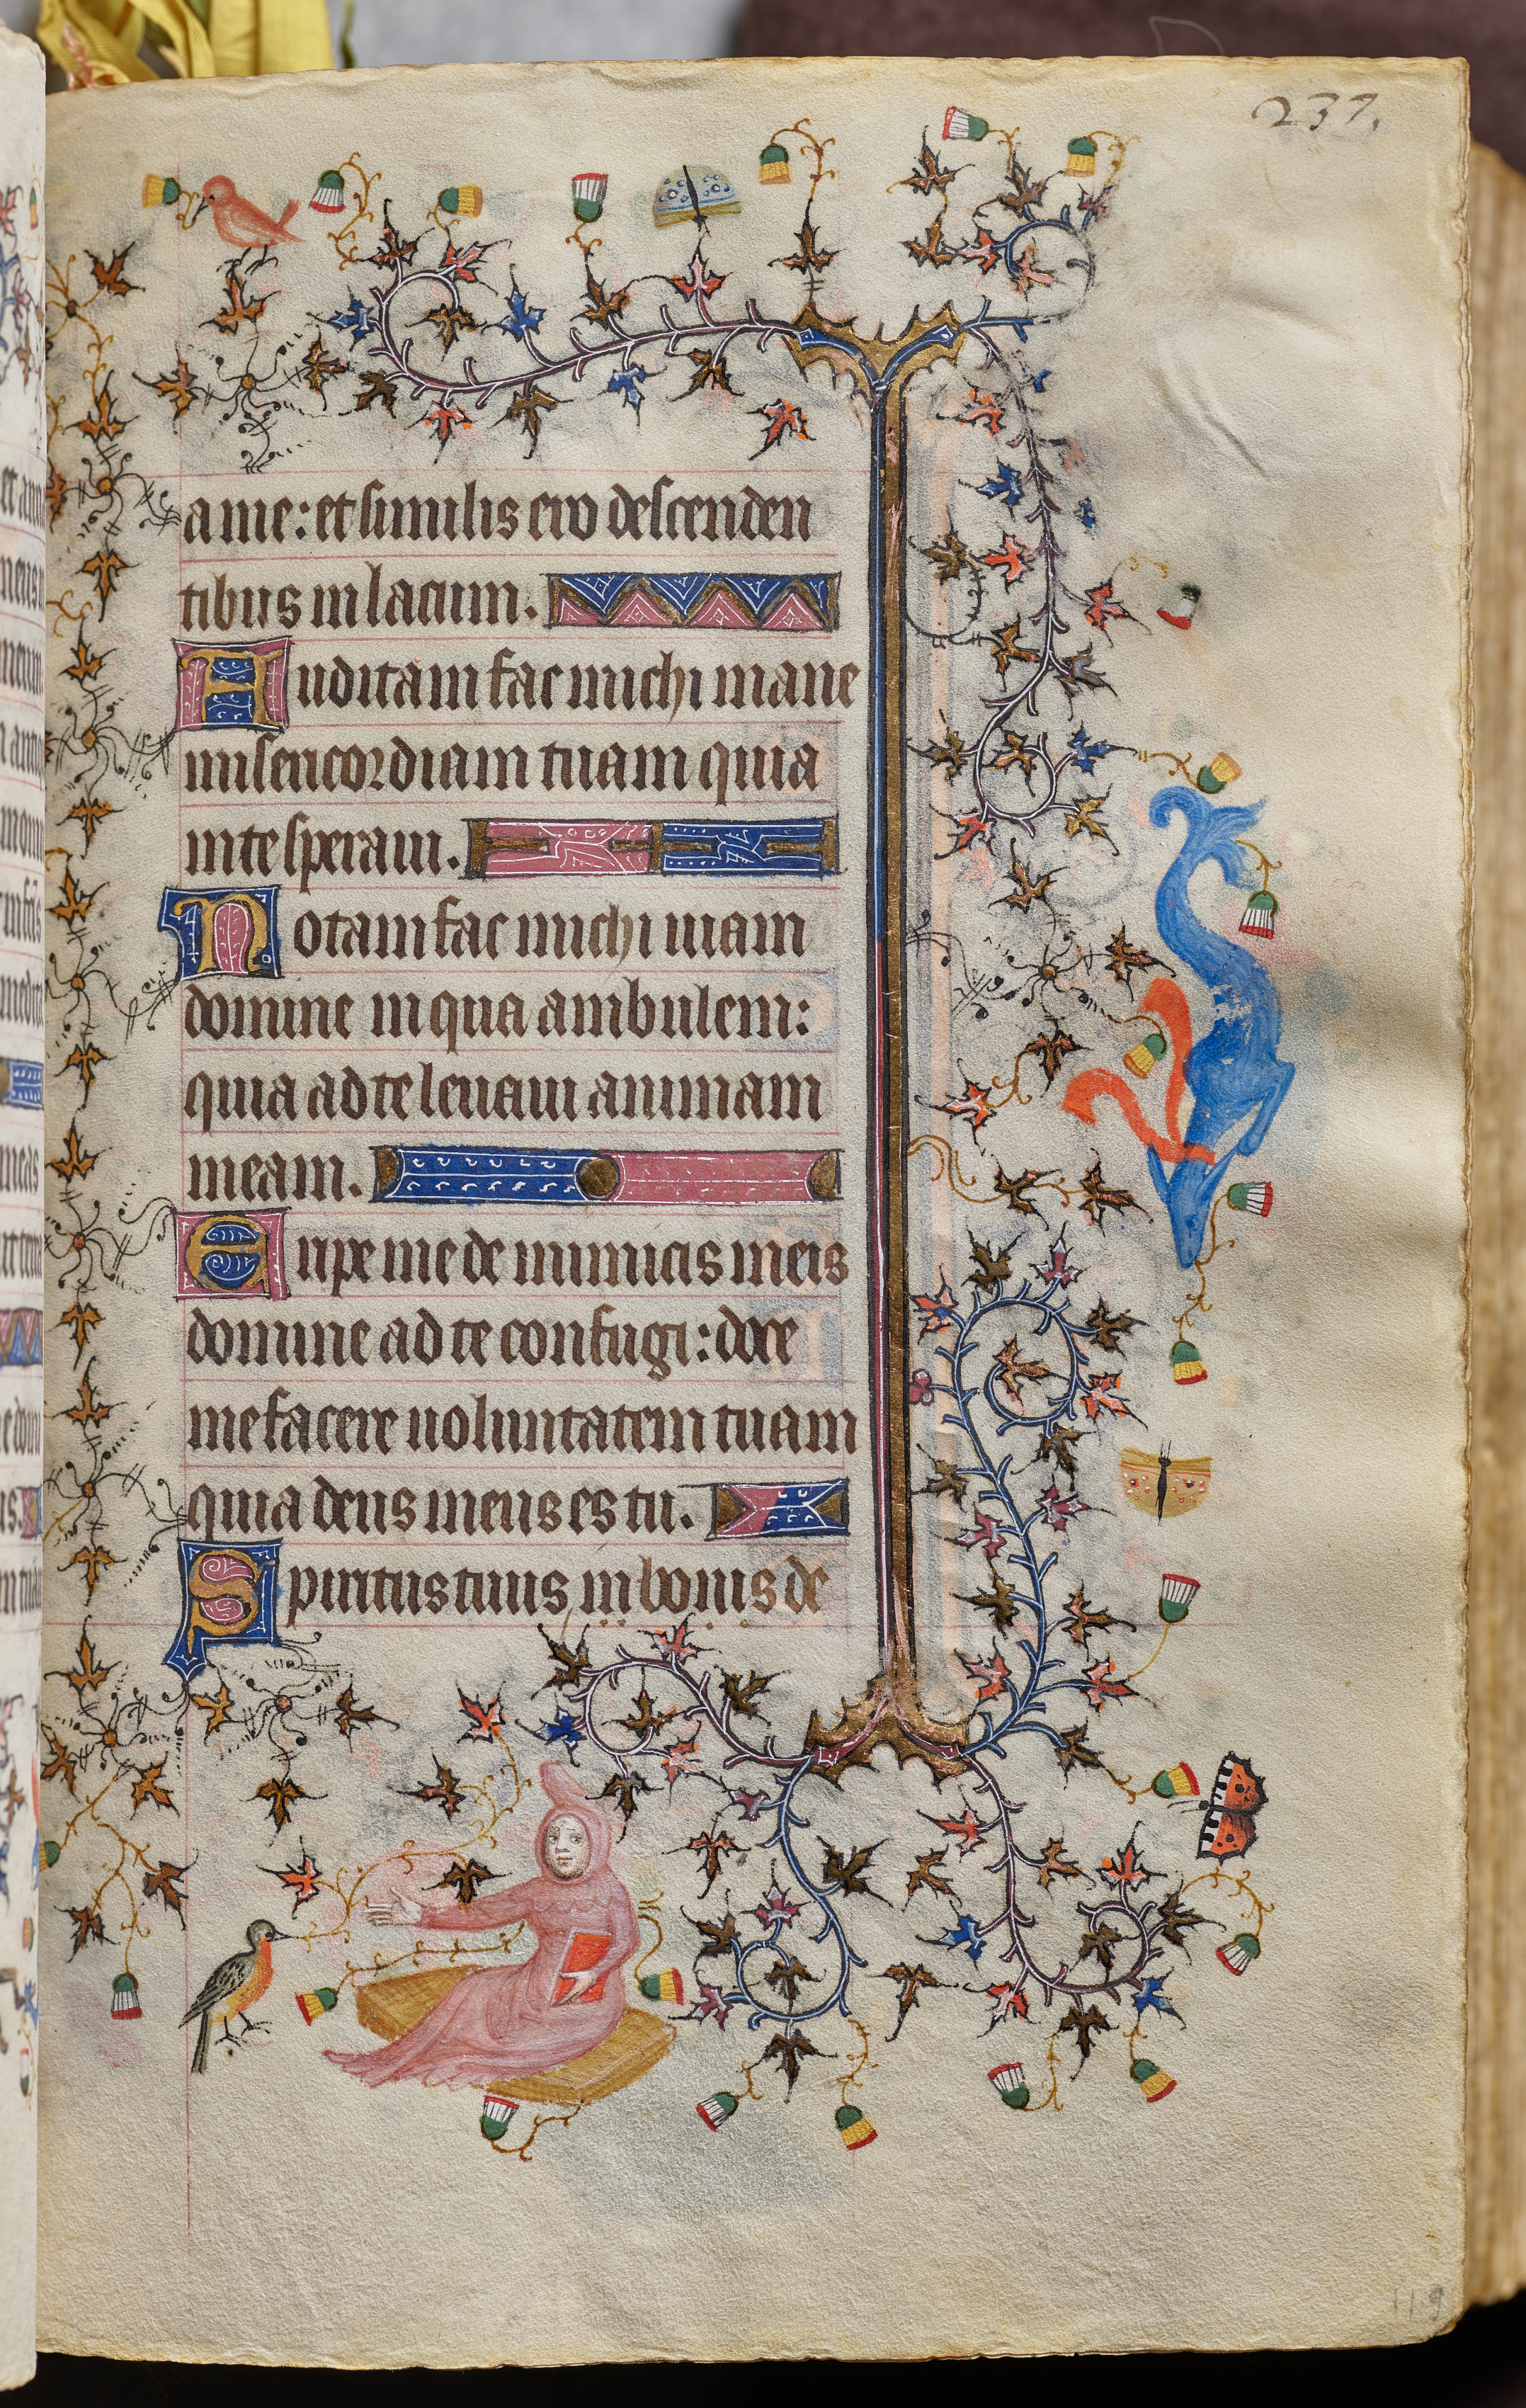 237.
a me: et similis ero descenden
tibus in lacum.
Auditam fac michi mane
misericordiam tuam quia
in te speraui.
Notam fac michi uiam
domine in qua ambulem:
quia ad te leuaui animam
meam.
Eripe me de inimicis meis
domine ad te confugi: doce
me facere uoluntatem tuam
quia deus meus es tu.
Spiritus tuus in bonis de
119